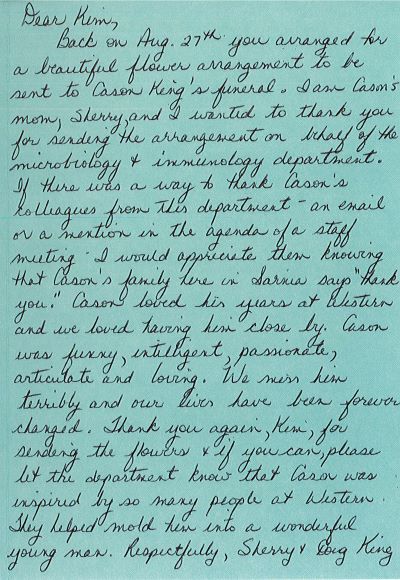 Dear Kim,
Back on Aug. 27th you arranged for
a beautiful flower arrangement to be
sent to Cason King's funeral. I am Cason's
mom, Sherry, and I wanted to thank you
for sending the arrangement on behalf of the
microbiology & immunology department.
If there was a way to thank Cason's
colleagues from this department - an email
or a mention in the agenda of a staff
meeting - I would appreciate them knowing
that Cason's family here in Sarnia says "thank
you." Cason loved his years at Western
and we loved having him close by. Cason
was funny, intelligent, passionate,
articulate and loving. We miss him
terribly and our lives have been forever
changed. Thank you again, Kim, for
sending the flowers & if you can, please
let the department know that Cason was
inspired by so many people at Western.
They helped mold him into a wonderful
young man. Respectfully, Sherry & Doug King